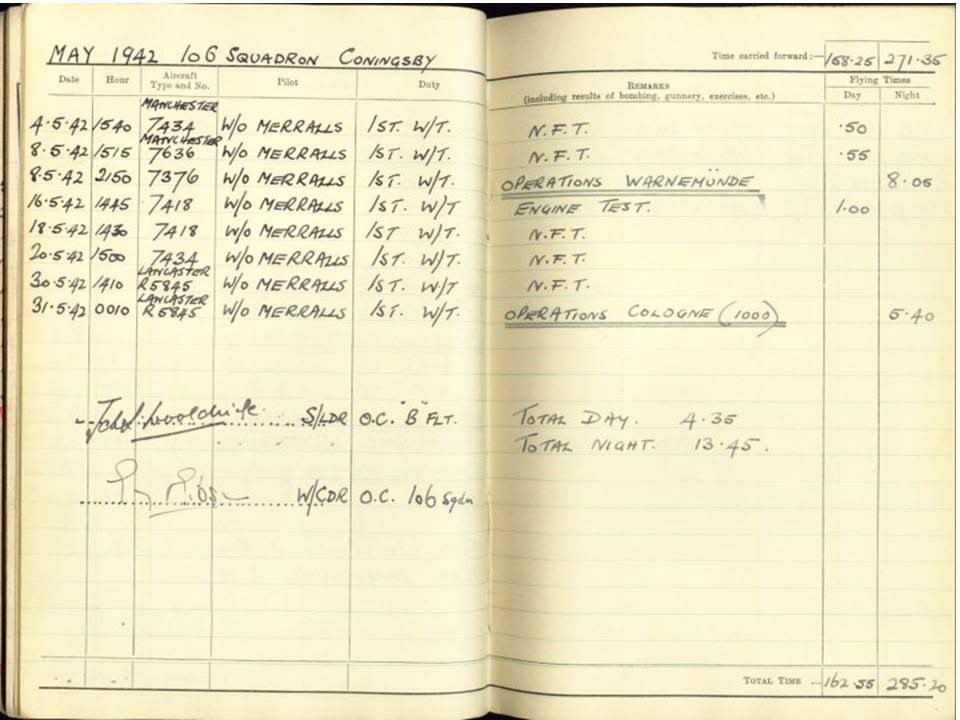 MAY 1942 106 SQUADRON CONINGSBY
Time carried forward:— 158.25 271.35
Date Hour Aircraft Type and No. Pilot Duty REMARKS (including results of bombing, gunnery, exercises, etc.) Flying Times Day Night
MANCHESTER
4.5.42 1540 7434 W/O MERRALLS 1ST. W/T. N.F.T. .50
MANCHESTER
8.5.42 1515 7636 W/O MERRALLS 1ST. W/T. N.F.T. .55
8.5.42 2150 7376 W/O MERRALLS 1ST. W/T. OPERATIONS WARNEMÜNDE 8.05
16.5.42 1445 7418 W/O MERRALLS 1ST. W/T ENGINE TEST. 1.00
18.5.42 1430 7418 W/O MERRALLS 1ST W/T. N.F.T.
20.5.42 1500 7434 W/O MERRALLS 1ST. W/T. N.F.T.
LANCASTER
30.5.42 1410 R5845 W/O MERRALLS 1ST. W/T N.F.T.
LANCASTER
31.5.42 0010 R5845 W/O MERRALLS 1ST. W/T. OPERATIONS COLOGNE (1000) 5.40
S/LDR O.C. "B" FLT. TOTAL DAY. 4.35
TOTAL NIGHT. 13.45.
W/CDR O.C. 106 Sqdn
TOTAL TIME ... 162.55 285.20